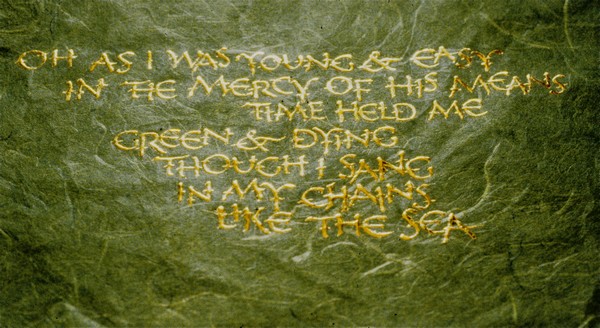 OH AS I WAS YOUNG & EASY
IN THE MERCY OF HIS MEANS
TIME HELD ME
GREEN & DYING
THOUGH I SANG
IN MY CHAINS
LIKE THE SEA